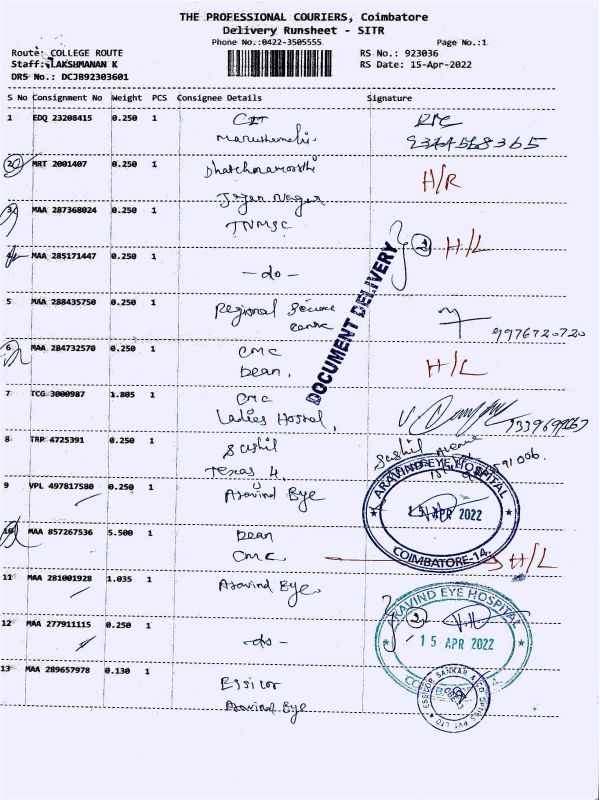 THE PROFESSIONAL COURIERS, Coimbatore
Delivery Runsheet - SITR
Phone No.:0422-3505555
Page No.:1
Route: COLLEGE ROUTE
RS No.: 923036
Staff: LAKSHMANAN K
RS Date: 15-Apr-2022
DRS No.: DCJB92303601
S No Consignment No Weight PCS Consignee Details Signature
1 EDQ 23208415 0.250 1 CIT
2 MRT 2001407 0.250 1 H/R
Nagar
3 MAA 287368024 0.250 1
TNMSC
2 H/L
4 MAA 285171447 0.250 1
-do-
DOCUMENT DELIVERY
5 MAA 288435750 0.250 1 Regional Science
centre 9976720720
6 MAA 284732570 0.250 1 CMC H/L
Dean,
7 TCG 3000987 1.805 1 CMC
Ladies Hostel,
8 TRP 4725391 0.250 1 Sushil
Texas 4.
9 VPL 497817580 0.250 1 Aravind Eye
ARAVIND EYE HOSPITAL
15 APR 2022
COIMBATORE-14.
10 MAA 857267536 5.500 1 Dean
CMC H/L
11 MAA 281001928 1.035 1 Aravind Eye
ARAVIND EYE HOSPITAL
12 MAA 277911115 0.250 1
-do- 2
15 APR 2022
13 MAA 289657978 0.130 1 Essilor
Aravind Eye